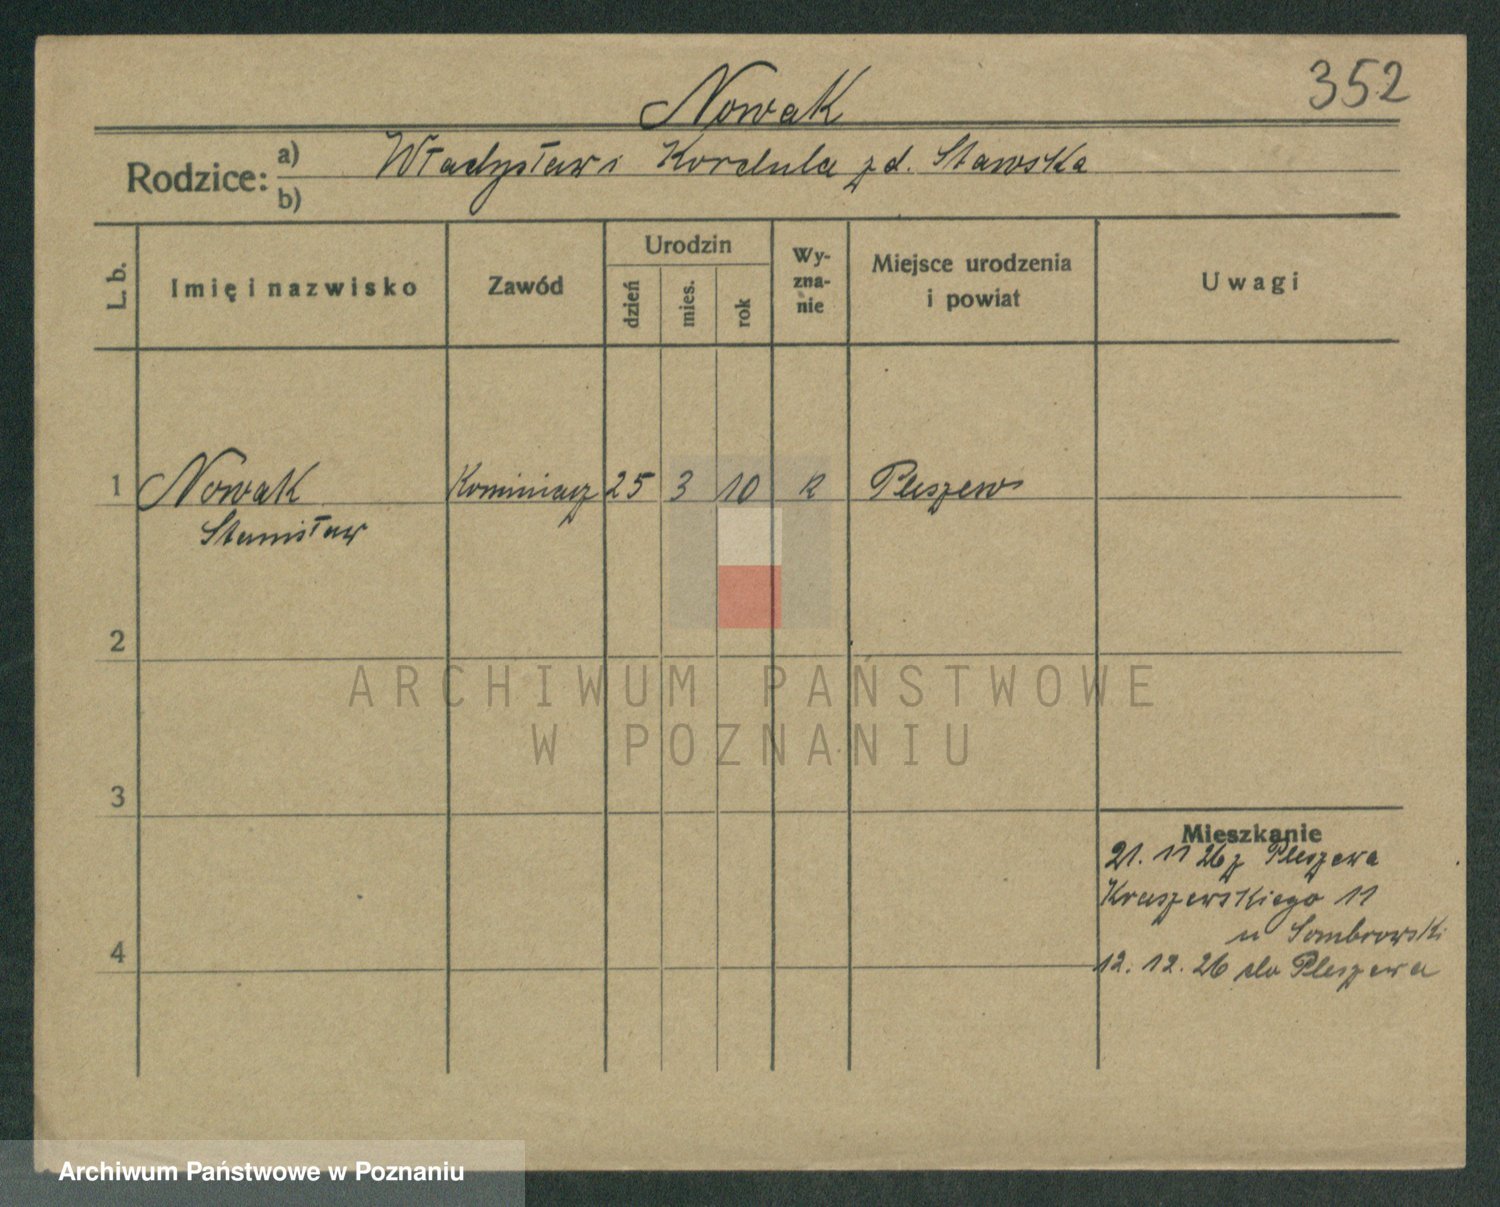 352
Nowak
Rodzice: a) Władysław i Kordula z d. Stawska
b)
L. b.
Imię i nazwisko
Zawód
Urodzin
dzień
mies.
rok
Wy-
zna-
nie
Miejsce urodzenia
i powiat
Uwagi
1 Nowak Kominiarz 25 3 10 k Pleszew
Stanisław
2
3
4
Mieszkanie
21. 11 26 z Pleszewa
Kraszewskiego 11
u Dombrowski
12. 12. 26 do Pleszewa
ARCHIWUM PAŃSTWOWE
W POZNANIU
Archiwum Państwowe w Poznaniu